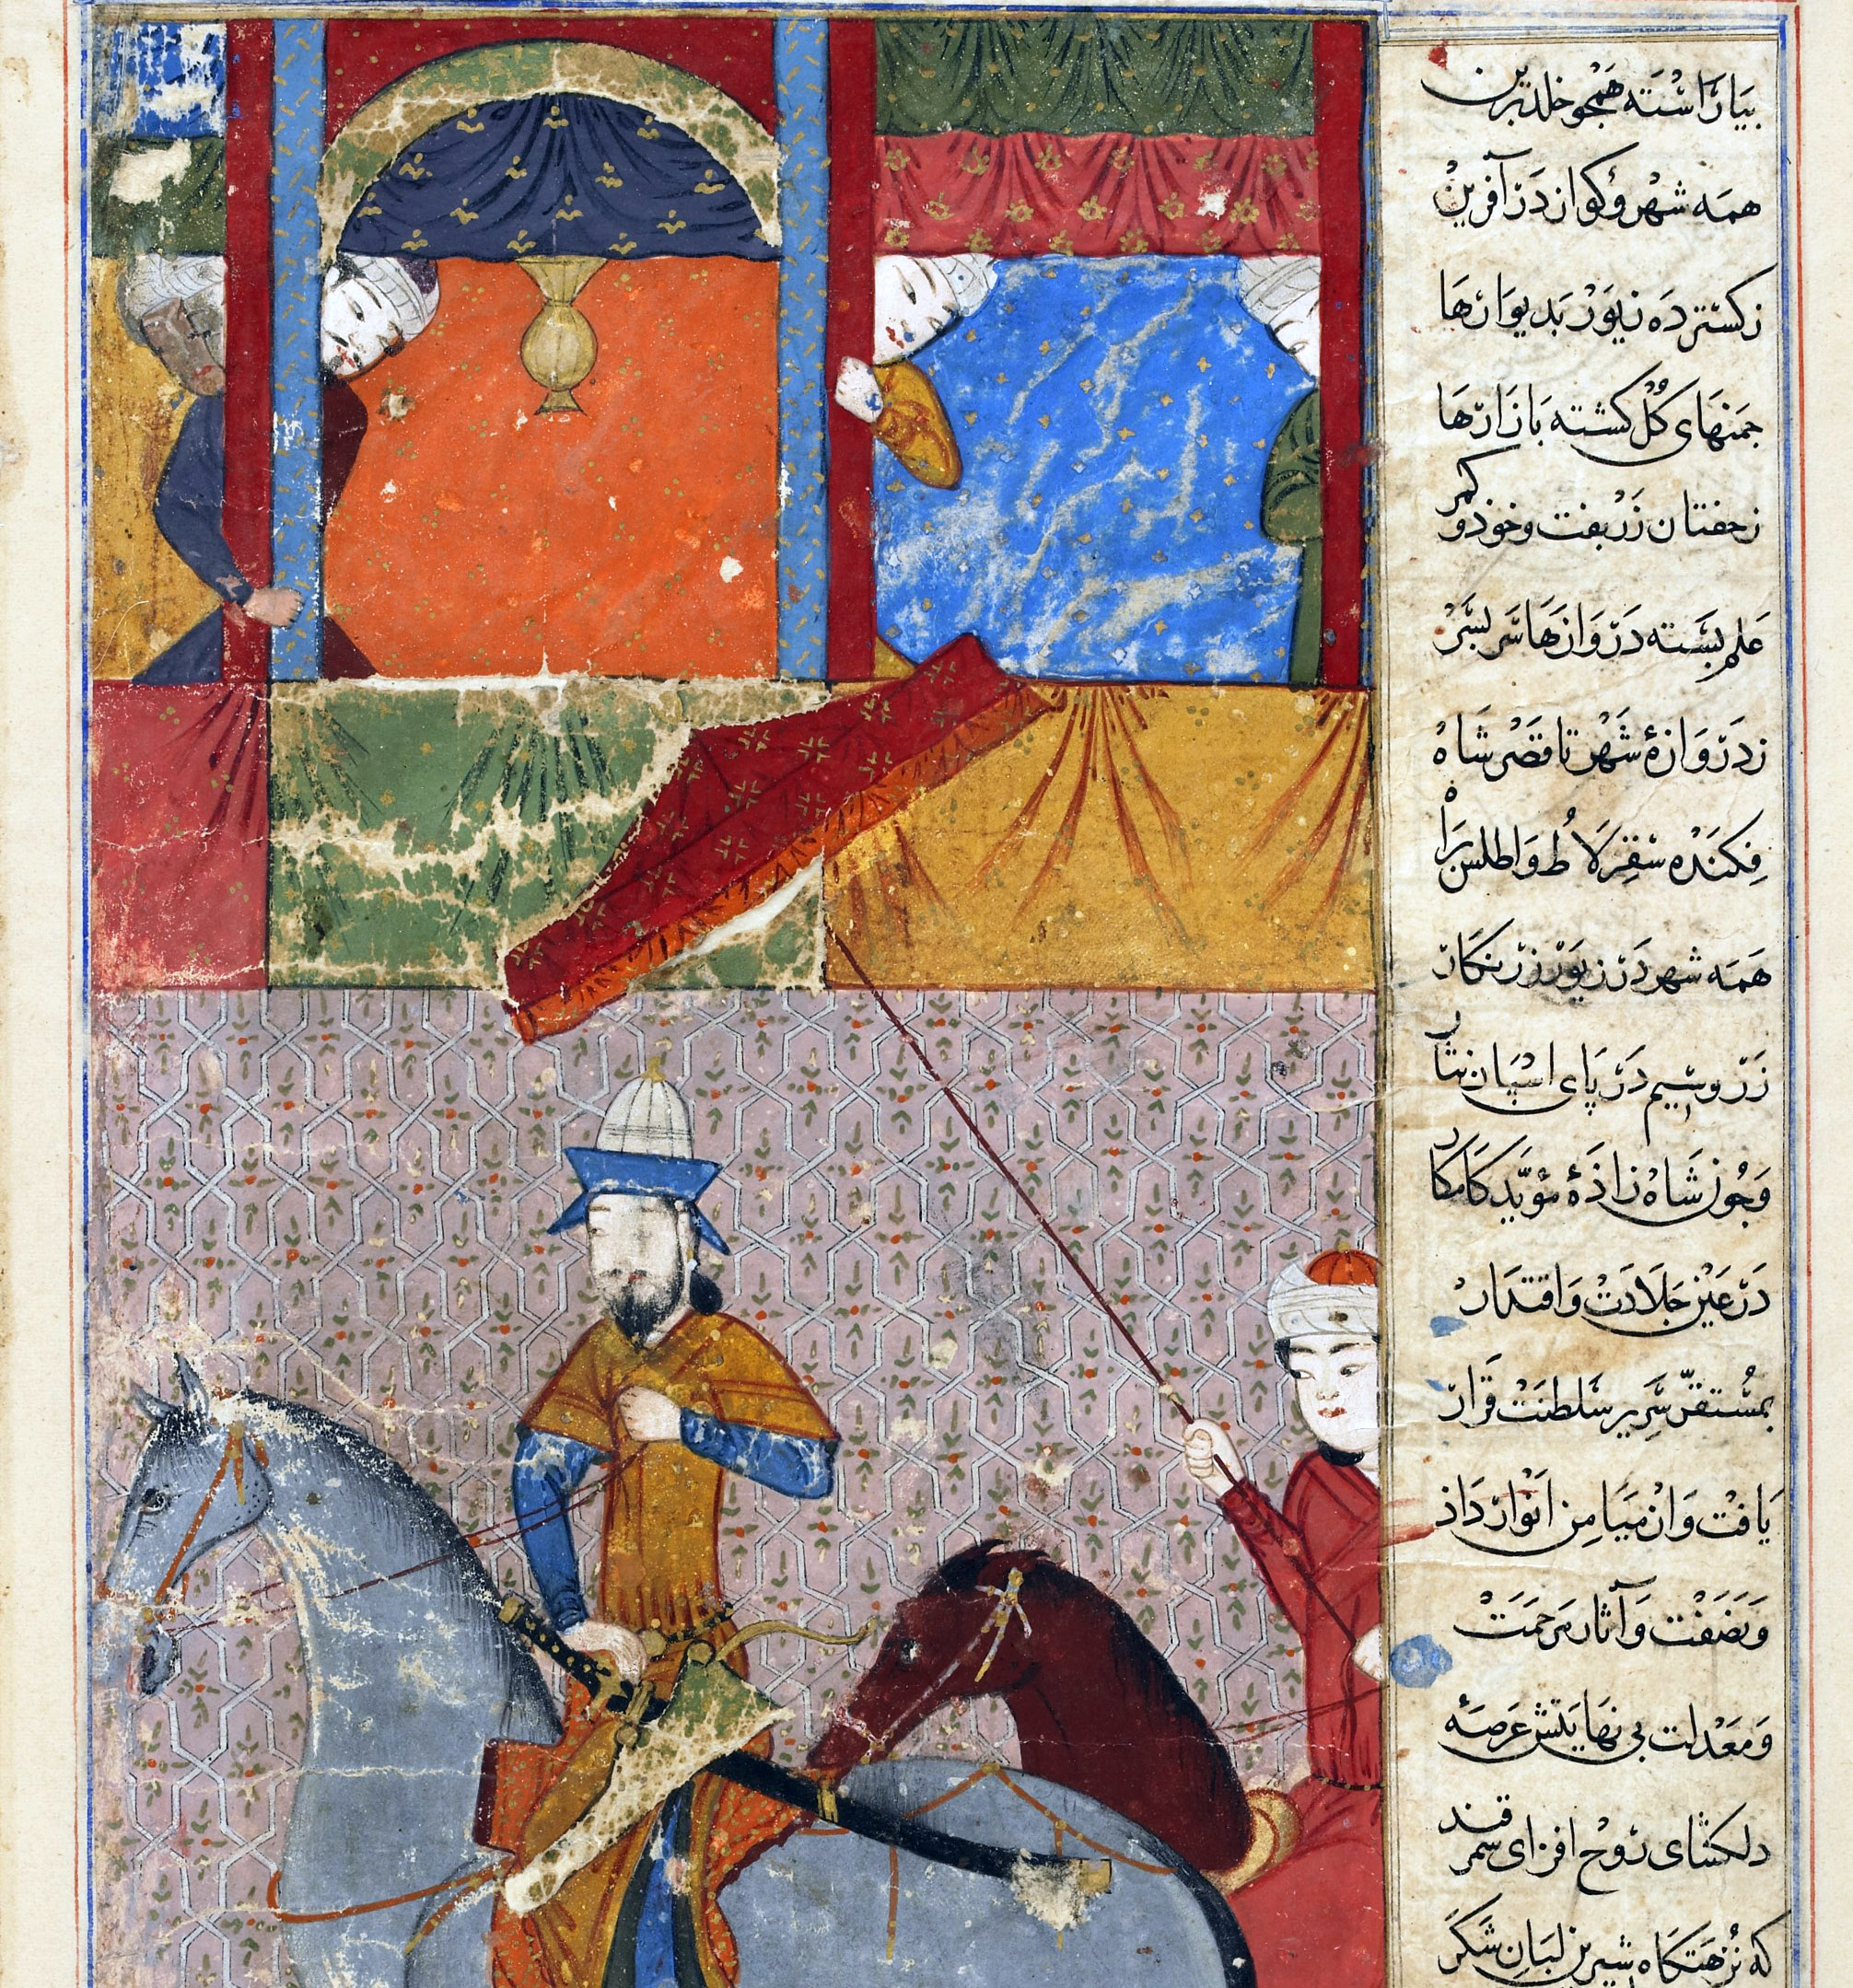 بیاراسته همجو خلد برین
همه شهر و کو از در آفرین
ز کسترده زیور بدیوارها
جمنهای کل کشته بازارها
ز خفتان زربفت و خوذ و کمر
علم بسته دروازها سر بسر
ز دروازهٔ شهر تا قصر شاه
فکنده سقرلاط و اطلس براه
همه شهر در زیور زرنکار
زر و سیم در پای اسپان نثار
و جون شاه زاذهٔ مؤید کامکار
در عین جلادت و اقتدار
بمستقر سریر سلطنت قرار
یافت و از میامن انوار داذ
و نصفت و آثار مرحمت
و معدلت بی نهایتش عرصهٔ
دلکشای روح افزای سمرقند
که نزهتکاه شیرین لبان شکر